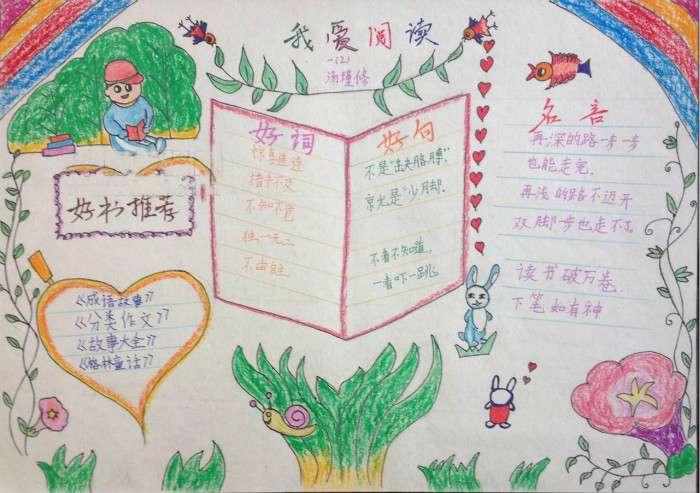 我爱阅读
一(2)
好书推荐
《成语故事》
《分类作文》
《故事大全》
《格林童话》
好词
惊喜连连
措手不及
不知不觉
独一无二
不由自主
好句
不是“缺胳膊”,
就是“少脚.
不看不知道,
一看吓一跳
名言
再深的路一步一步
也能走完,
再浅的路不迈开
双脚一步也走不了。
读书破万卷,
下笔如有神